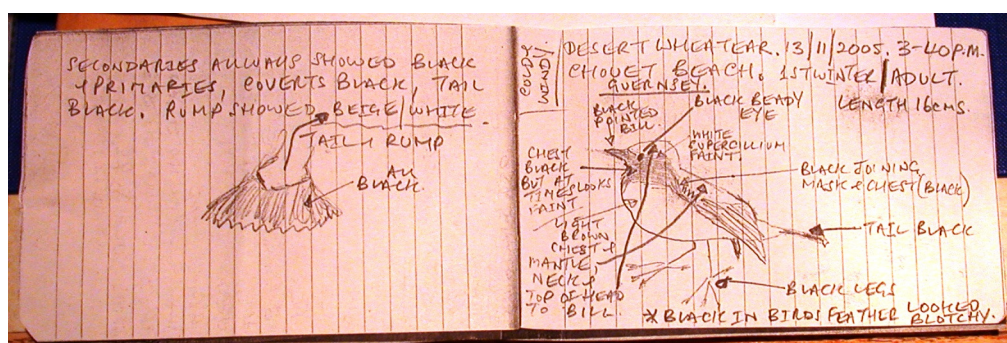 SECONDARIES ALWAYS SHOWED BLACK
& PRIMARIES, COVERTS BLACK, TAIL
BLACK. RUMP SHOWED BEIGE/WHITE.
TAIL & RUMP
ALL
BLACK.
COLD &
WINDY
DESERT WHEATEAR. 13/11/2005. 3-40P.M.
CHOUET BEACH. 1ST WINTER/ADULT.
GUERNSEY.
LENGTH 16CMS.
BLACK
POINTED
BILL.
BLACK BEADY
EYE
WHITE
SUPERCILLIUM
FAINT.
CHEST
BLACK
BUT AT
TIMES LOOKS
FAINT.
BLACK JOINING
MASK & CHEST (BLACK)
LIGHT
BROWN
CHEST &
MANTLE,
NECK &
TOP OF HEAD
TO BILL.
TAIL BLACK
BLACK LEGS
* BLACK IN BIRDS FEATHER LOOKED
BLOTCHY.